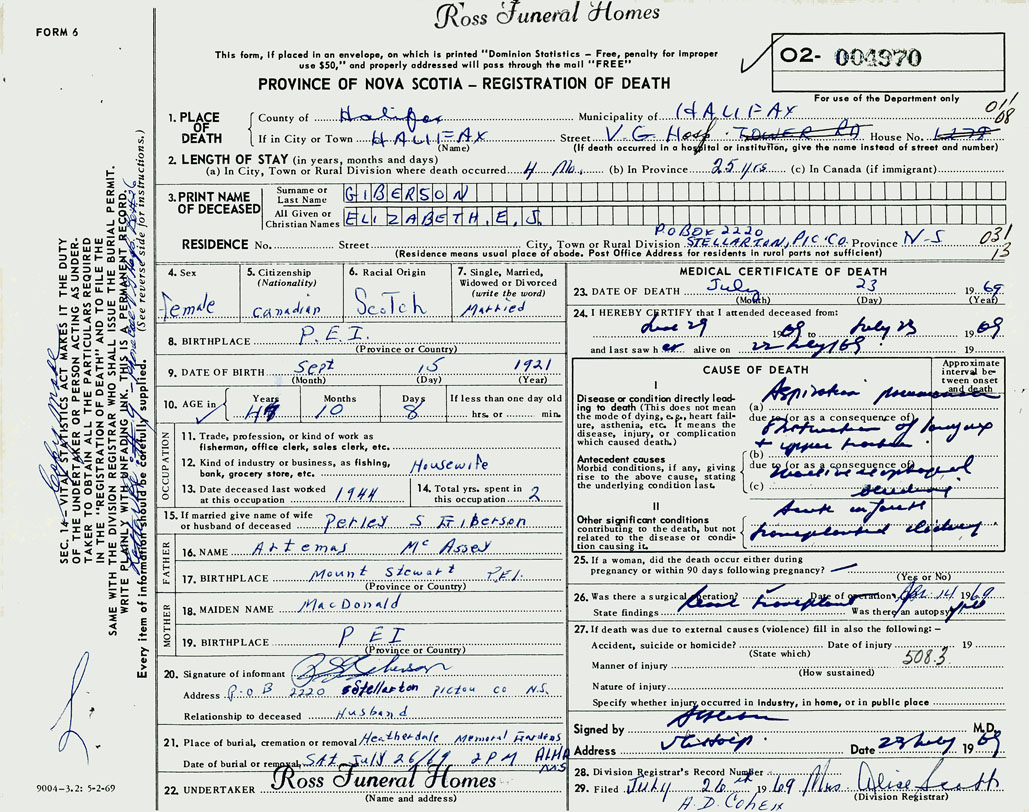 Ross Funeral Homes
FORM 6
This form, if placed in an envelope, on which is printed "Dominion Statistics – Free, penalty for improper
use $50," and properly addressed will pass through the mail "FREE"
PROVINCE OF NOVA SCOTIA – REGISTRATION OF DEATH
O2- 004970
For use of the Department only
011
08
1. PLACE OF DEATH
County of Halifax Municipality of HALIFAX
If in City or Town HALIFAX Street V. G. Hosp. TOWER RD House No.
(Name) (If death occurred in a hospital or institution, give the name instead of street and number)
2. LENGTH OF STAY (in years, months and days)
(a) In City, Town or Rural Division where death occurred 4 Mo. (b) In Province 25 yrs (c) In Canada (if immigrant)
3. PRINT NAME OF DECEASED
Surname or Last Name GIBERSON
All Given or Christian Names ELIZABETH. E. S.
P O BOX 2220
RESIDENCE No. Street City, Town or Rural Division STELLARTON, PIC. CO. Province N-S 031
(Residence means usual place of abode. Post Office Address for residents in rural parts not sufficient) 13
4. Sex Female
5. Citizenship (Nationality) Canadian
6. Racial Origin Scotch
7. Single, Married, Widowed or Divorced (write the word) Married
8. BIRTHPLACE P.E.I.
(Province or Country)
9. DATE OF BIRTH Sept 15 1921
(Month) (Day) (Year)
10. AGE in Years 47 Months 10 Days 8 If less than one day old
hrs. or min.
OCCUPATION
11. Trade, profession, or kind of work as
fisherman, office clerk, sales clerk, etc.
12. Kind of industry or business, as fishing,
bank, grocery store, etc. Housewife
13. Date deceased last worked
at this occupation 1944
14. Total yrs. spent in
this occupation 2
15. If married give name of wife
or husband of deceased Perley S Giberson
FATHER
16. NAME Artemas Mc Assey
17. BIRTHPLACE Mount Stewart P.E.I.
(Province or Country)
MOTHER
18. MAIDEN NAME MacDonald
19. BIRTHPLACE P E I
(Province or Country)
20. Signature of informant
Address P.O.B 2220 Stellarton Pictou Co N.S.
Relationship to deceased Husband
21. Place of burial, cremation or removal Heatherdale Memorial Gardens
Date of burial or removal SAt July 26/69 2 PM
22. UNDERTAKER Ross Funeral Homes
(Name and address)
MEDICAL CERTIFICATE OF DEATH
23. DATE OF DEATH July 23 1969
(Month) (Day) (Year)
24. I HEREBY CERTIFY that I attended deceased from:
June 29 1969 to July 23 1969
and last saw her alive on 22 July 169 19
CAUSE OF DEATH
Approximate interval between onset and death
I
Disease or condition directly leading to death (This does not mean the mode of dying, e.g., heart failure, asthenia, etc. It means the disease, injury, or complication which caused death.)
(a) Aspiration pneumonia
due to (or as a consequence of)
Obstruction of larynx
+ upper trachea
Antecedent causes
Morbid conditions, if any, giving rise to the above cause, stating the underlying condition last.
(b)
due to (or as a consequence of)
Massive esophageal
(c) bleeding
II
Other significant conditions
contributing to the death, but not related to the disease or condition causing it.
transplanted kidney
25. If a woman, did the death occur either during
pregnancy or within 90 days following pregnancy? —
(Yes or No)
26. Was there a surgical operation? Renal transplant Date of operation Apr. 14 1969
State findings Was there an autopsy
27. If death was due to external causes (violence) fill in also the following: –
Accident, suicide or homicide? Date of injury 19
(State which) 508.3
Manner of injury
(How sustained)
Nature of injury
Specify whether injury occurred in industry, in home, or in public place
Signed by M.D.
Address Date 23 July 1969
28. Division Registrar's Record Number
29. Filed July 26th 1969 Mrs Alise Scott
(Division Registrar)
SEC. 14–VITAL STATISTICS ACT MAKES IT THE DUTY
OF THE UNDERTAKER OR PERSON ACTING AS UNDER-
TAKER TO OBTAIN ALL THE PARTICULARS REQUIRED
IN THE "REGISTRATION OF DEATH" AND TO FILE THE
SAME WITH THE DIVISION REGISTRAR WHO SHALL ISSUE THE BURIAL PERMIT.
WRITE PLAINLY WITH UNFADING INK. THIS IS A PERMANENT RECORD.
Every item of information should be carefully supplied. (See reverse side for instructions.)
9004–3.2: 5-2-69